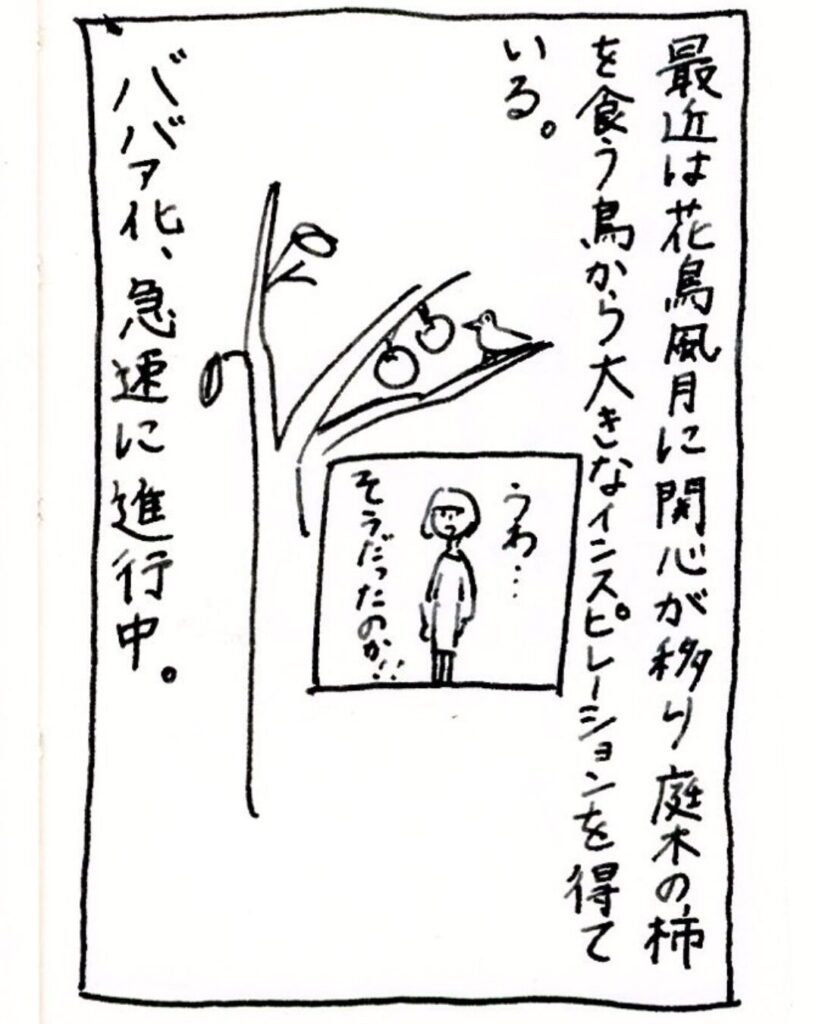 最近は花鳥風月に関心が移り庭木の柿
を食う鳥から大きなインスピレーションを得て
いる。
うわ…
そうだったのか!!
ババァ化、急速に進行中。